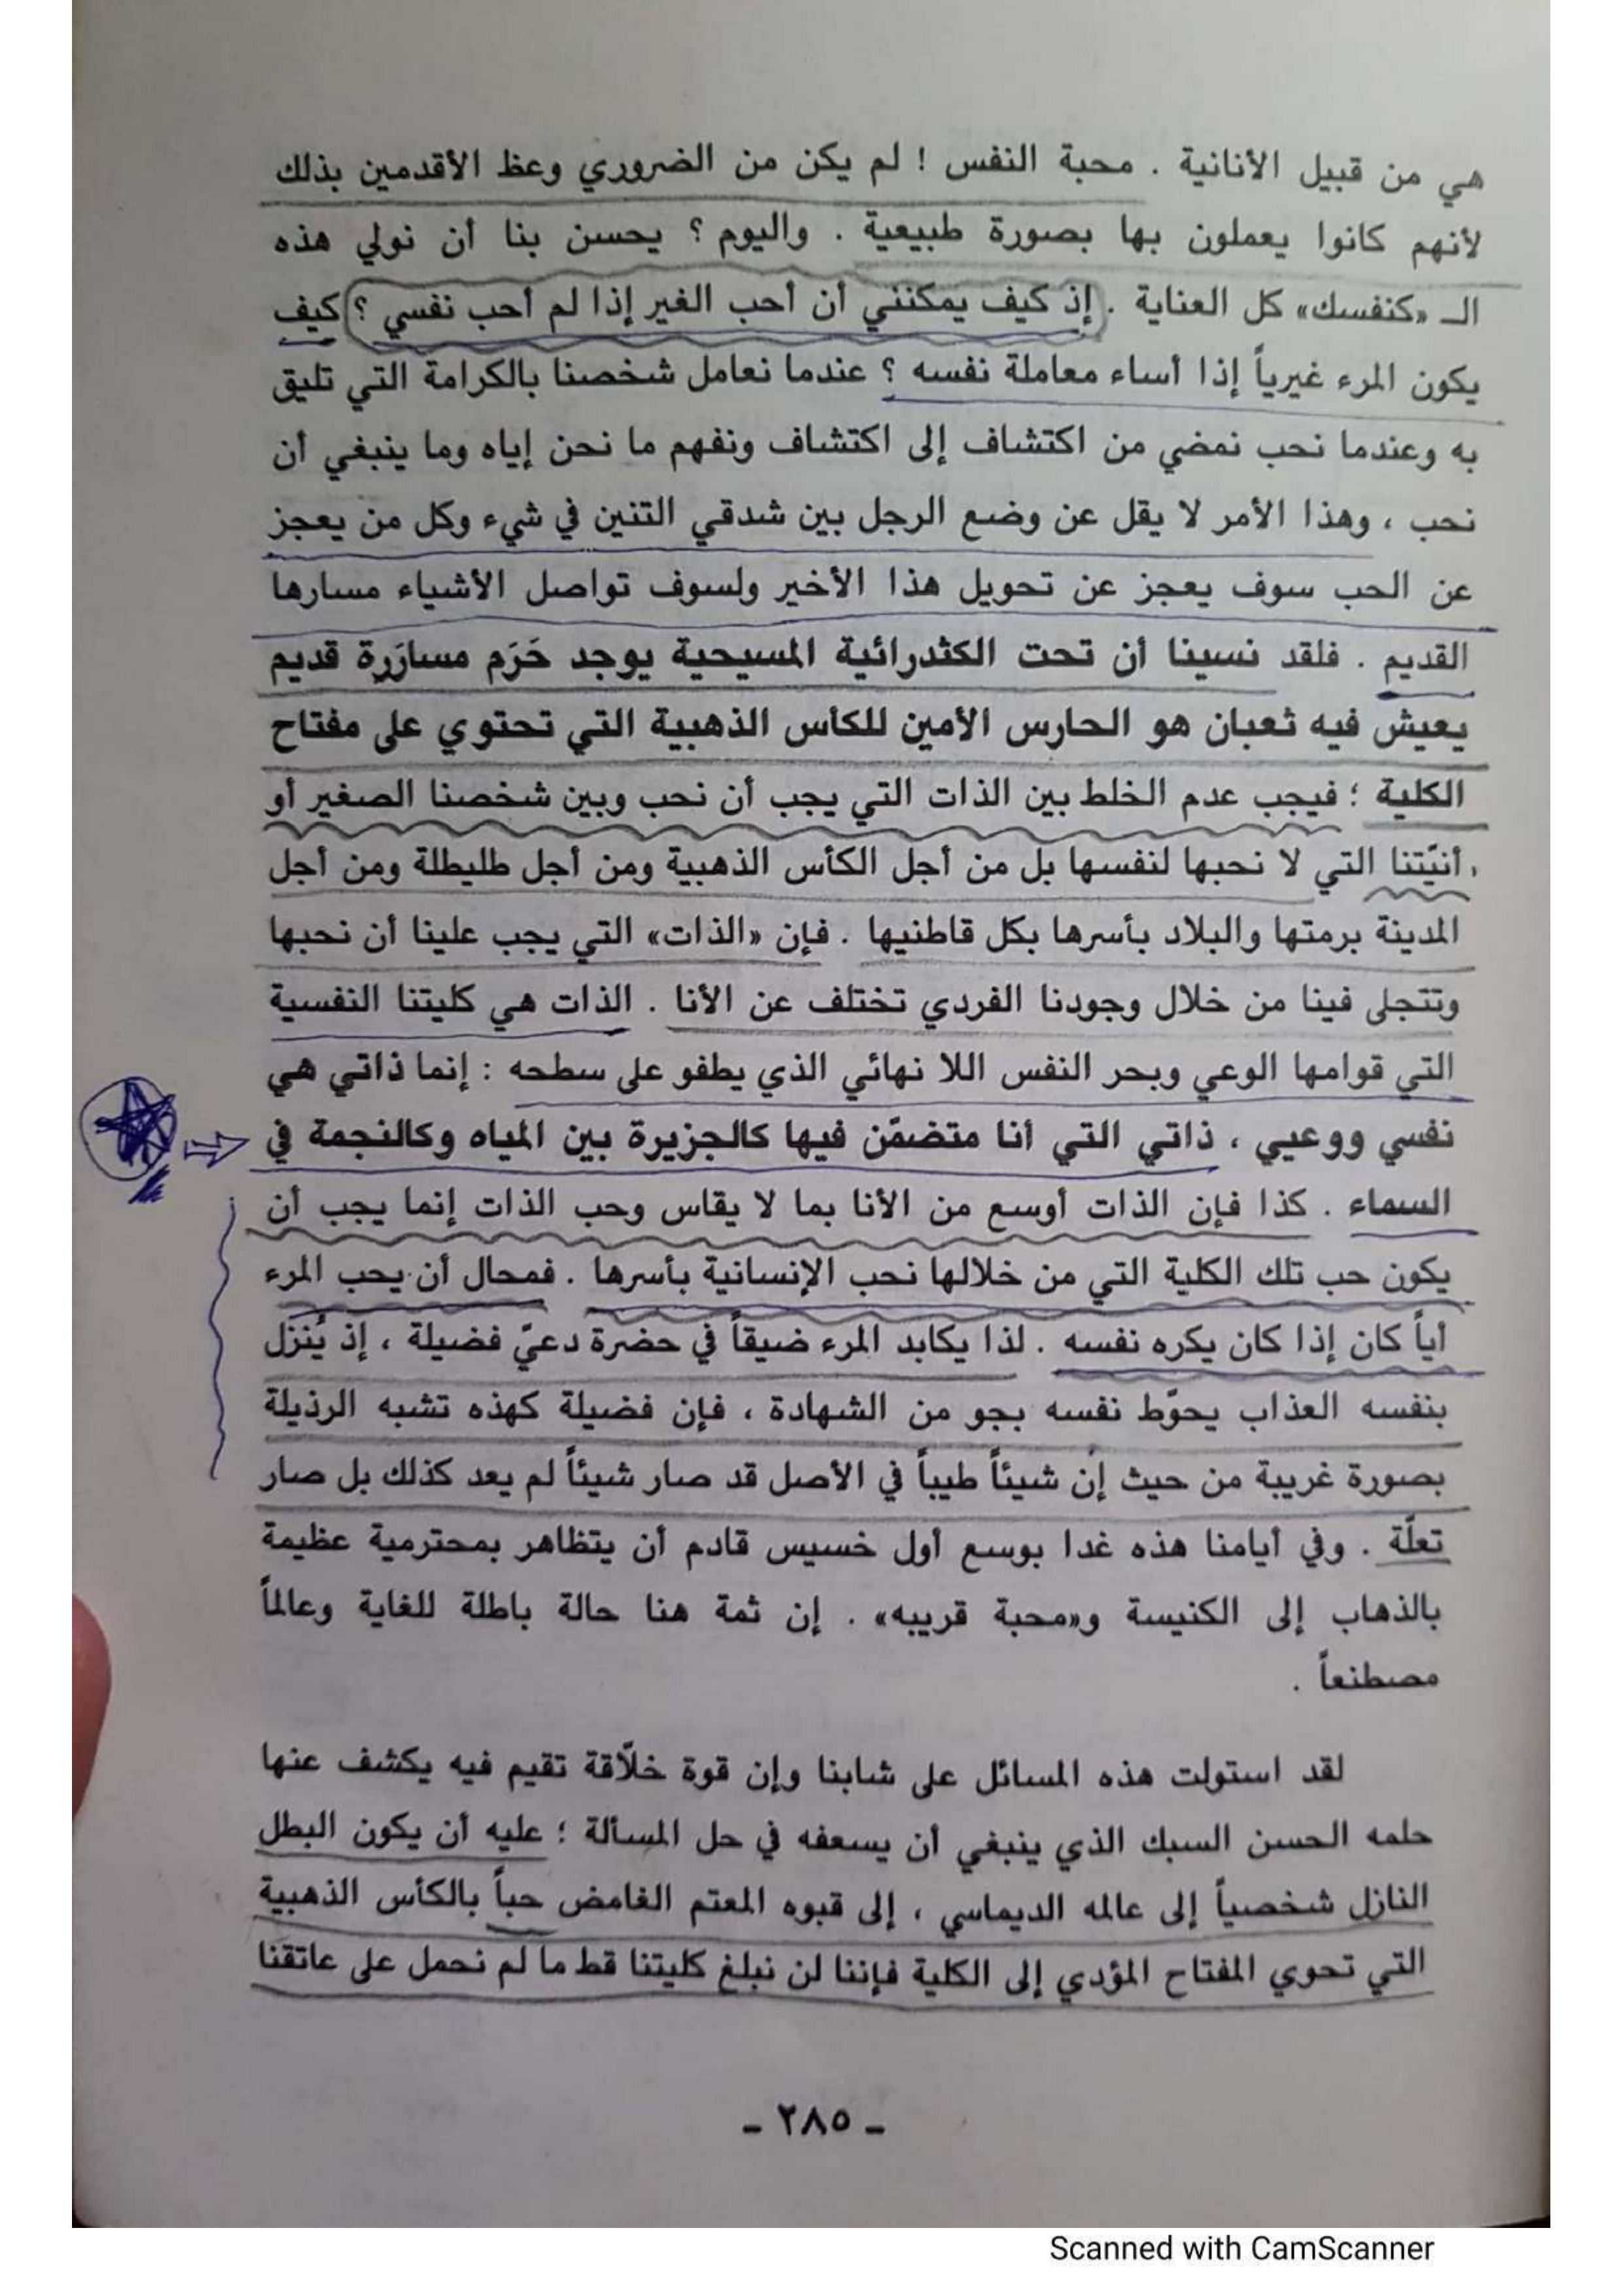 هي من قبيل الأنانية . محبة النفس ! لم يكن من الضروري وعظ الأقدمين بذلك
لأنهم كانوا يعملون بها بصورة طبيعية . واليوم ؟ يحسن بنا أن نولي هذه
الـ «كنفسك» كل العناية . إذ كيف يمكنني أن أحب الغير إذا لم أحب نفسي ؟ كيف
يكون المرء غيرياً إذا أساء معاملة نفسه ؟ عندما نعامل شخصنا بالكرامة التي تليق
به وعندما نحب نمضي من اكتشاف إلى اكتشاف ونفهم ما نحن إياه وما ينبغي أن
نحب ، وهذا الأمر لا يقل عن وضع الرجل بين شدقي التنين في شيء وكل من يعجز
عن الحب سوف يعجز عن تحويل هذا الأخير ولسوف تواصل الأشياء مسارها
القديم . فلقد نسينا أن تحت الكثدرائية المسيحية يوجد حَرَم مسارَرة قديم
يعيش فيه ثعبان هو الحارس الأمين للكأس الذهبية التي تحتوي على مفتاح
الكلية ؛ فيجب عدم الخلط بين الذات التي يجب أن نحب وبين شخصنا الصغير أو
أنيّتنا التي لا نحبها لنفسها بل من أجل الكأس الذهبية ومن أجل طليطلة ومن أجل
المدينة برمتها والبلاد بأسرها بكل قاطنيها . فإن «الذات» التي يجب علينا أن نحبها
وتتجلى فينا من خلال وجودنا الفردي تختلف عن الأنا . الذات هي كليتنا النفسية
التي قوامها الوعي وبحر النفس اللا نهائي الذي يطفو على سطحه : إنما ذاتي هي
نفسي ووعيي ، ذاتي التي أنا متضمّن فيها كالجزيرة بين المياه وكالنجمة في
السماء . كذا فإن الذات أوسع من الأنا بما لا يقاس وحب الذات إنما يجب أن
يكون حب تلك الكلية التي من خلالها نحب الإنسانية بأسرها . فمحال أن يحب المرء
أياً كان إذا كان يكره نفسه . لذا يكابد المرء ضيقاً في حضرة دعيّ فضيلة ، إذ يُنزل
بنفسه العذاب يحوّط نفسه بجو من الشهادة ، فإن فضيلة كهذه تشبه الرذيلة
بصورة غريبة من حيث إن شيئاً طيباً في الأصل قد صار شيئاً لم يعد كذلك بل صار
تعلّة . وفي أيامنا هذه غدا بوسع أول خسيس قادم أن يتظاهر بمحترمية عظيمة
بالذهاب إلى الكنيسة و«محبة قريبه» . إن ثمة هنا حالة باطلة للغاية وعالماً
مصطنعاً .
لقد استولت هذه المسائل على شابنا وإن قوة خلّاقة تقيم فيه يكشف عنها
حلمه الحسن السبك الذي ينبغي أن يسعفه في حل المسألة ؛ عليه أن يكون البطل
النازل شخصياً إلى عالمه الديماسي ، إلى قبوه المعتم الغامض حباً بالكأس الذهبية
التي تحوي المفتاح المؤدي إلى الكلية فإننا لن نبلغ كليتنا قط ما لم نحمل على عاتقنا
- ٢٨٥ -
Scanned with CamScanner